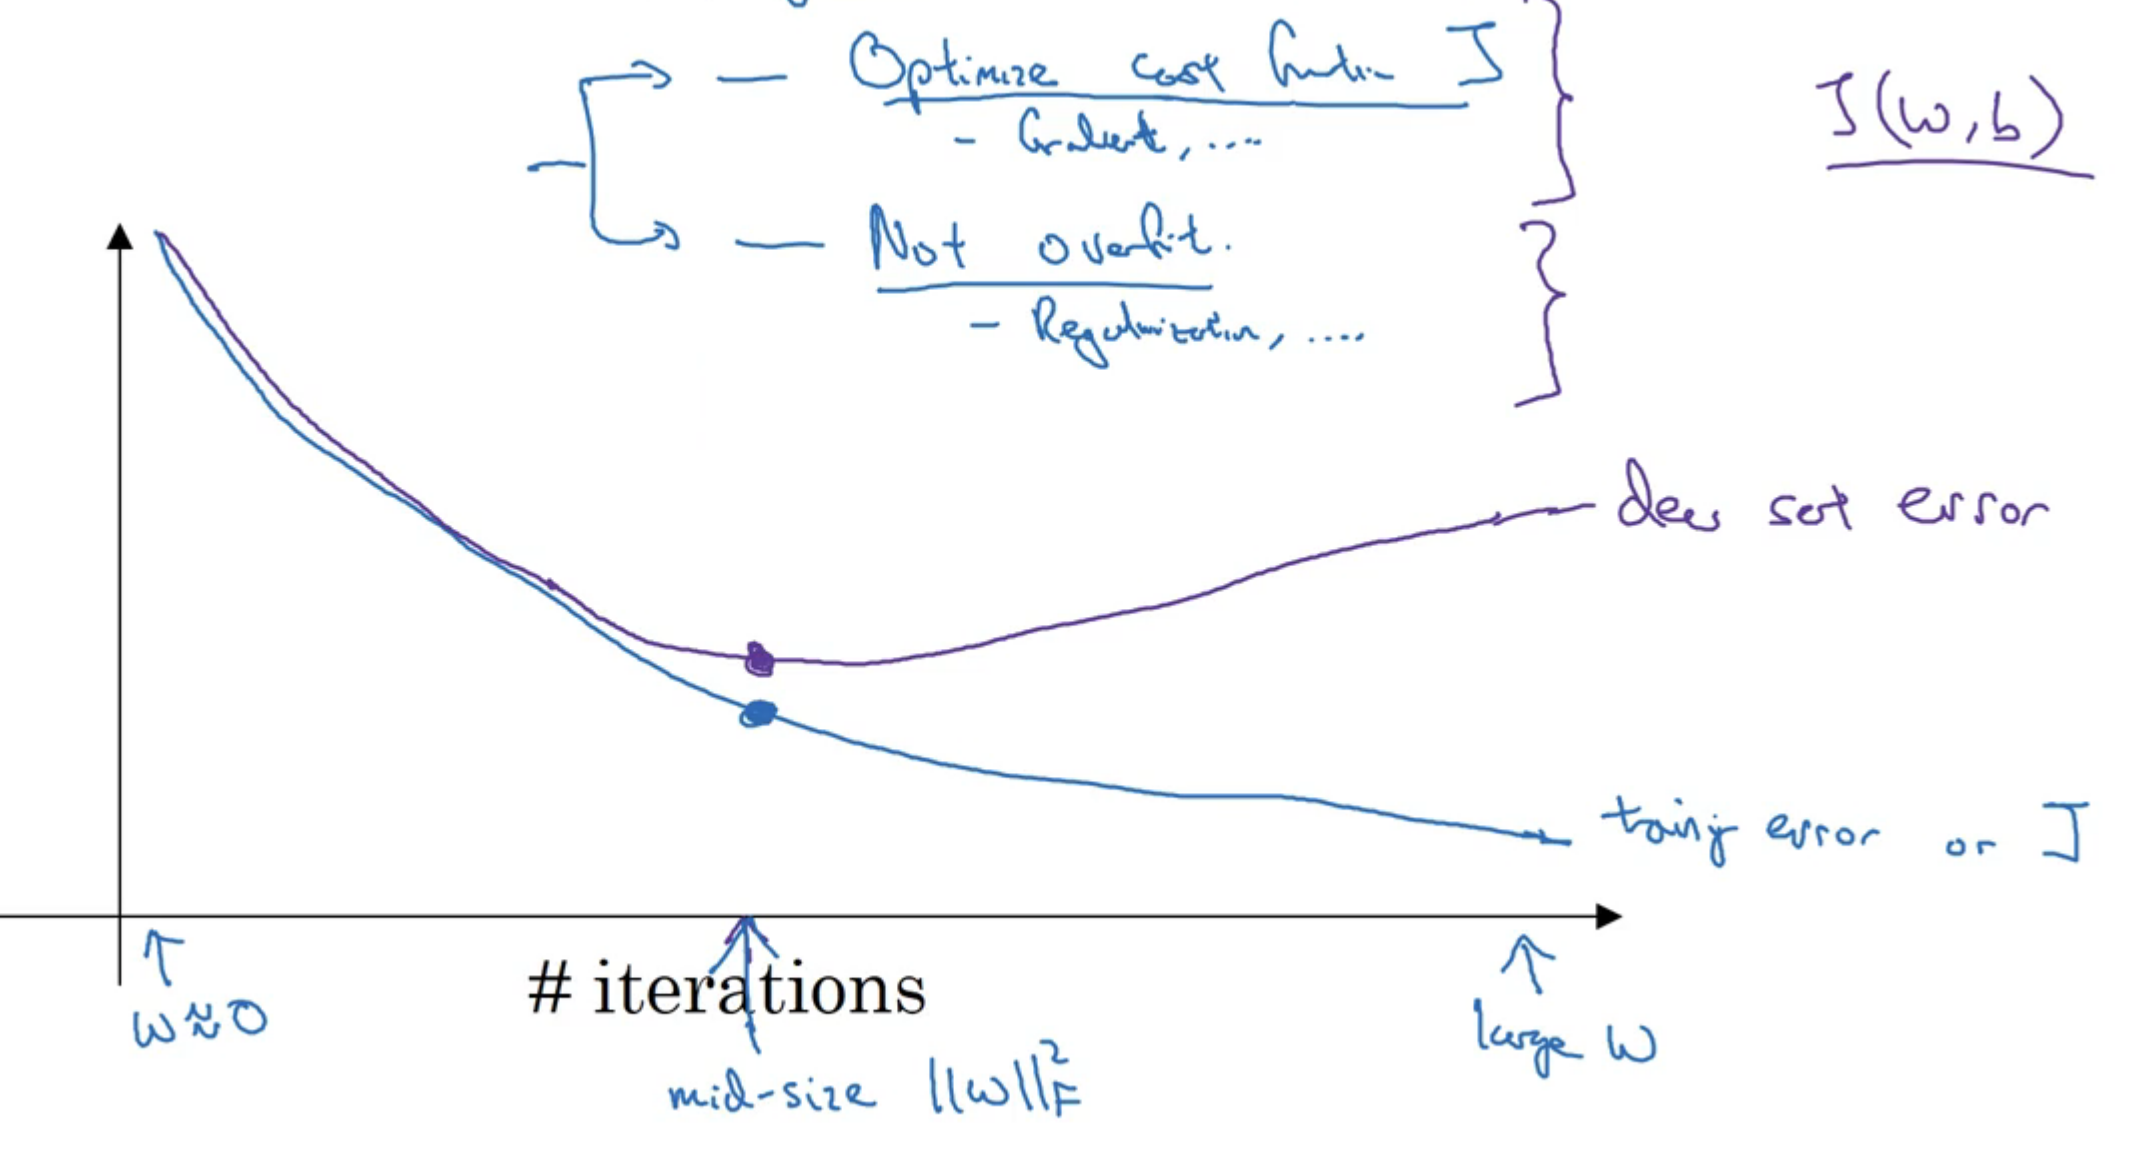 — Optimize cost function J
- Gradient, ....
J(w,b)
— Not overfit.
- Regularization, ....
dev set error
training error or J
# iterations
w≈0
large w
mid-size ||w||²_F